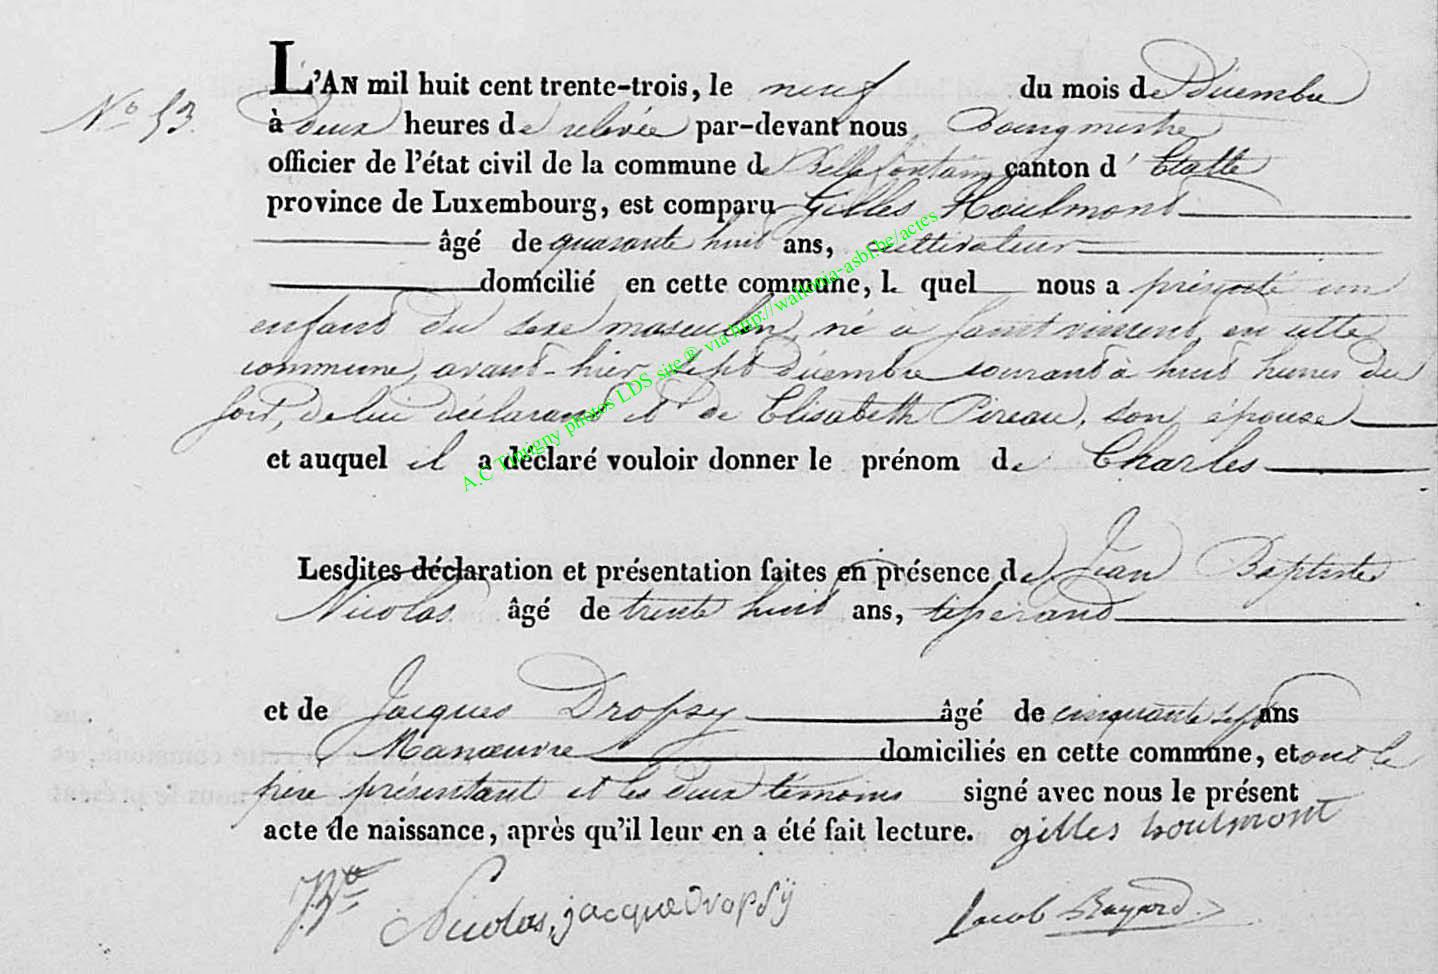 L'AN mil huit cent trente-trois, le neuf du mois de Décembre
N.o 53. à deux heures de relevée par-devant nous, Bourgmestre
officier de l'état civil de la commune de Bellefontaine canton d'Etalle
province de Luxembourg, est comparu Gilles Houlmont
âgé de quarante huit ans, cultivateur
domicilié en cette commune, lequel nous a présenté un
enfant du sexe masculin, né à saint vincent, en cette
commune, avant-hier sept décembre courant à huit heures du
soir, de lui déclarant et de Elisabeth Pireau, son épouse
et auquel il a déclaré vouloir donner le prénom de Charles
Lesdites déclaration et présentation faites en présence de Jean Baptiste
Nicolas âgé de trente huit ans, tisserand
et de Jacques Dropsy âgé de cinquante sept ans
Manœuvre domiciliés en cette commune, et ont le
père présentant et les deux témoins signé avec nous le présent
acte de naissance, après qu'il leur en a été fait lecture. gilles houlmont
J. Bte Nicolas, jacque Dropsÿ Jacob
A.C Tintigny photos LDS site ® via http://wallonia-asbl.be/actes